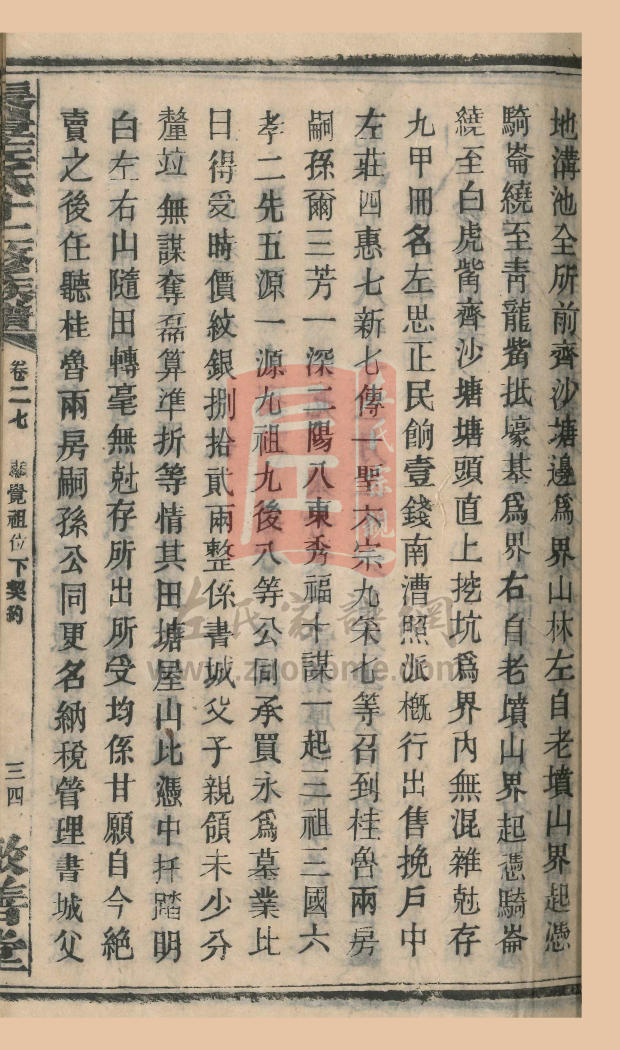 地溝池全所前齊沙塘邊爲界山林左自老墳山界起憑
騎崙繞至靑龍觜抵壕基爲界右自老墳山界起憑騎崙
繞至白虎觜齊沙塘塘頭直上挖坑爲界內無混雜尅存
九甲冊名左思正民餉壹錢南漕照派槪行出售挽戶中
左莊四惠七新七傳一聖六宗九宋七等召到桂魯兩房
嗣孫爾三芳一深二陽八東秀福十謀一起三祖三國六
孝二先五源一源九祖九後八等公同承買永爲墓業比
日得受時價紋銀捌拾貳兩整係書城父子親領未少分
釐竝無謀奪磊算準折等情其田塘屋山比憑中扦踏明
白左右山隨田轉毫無尅存所出所受均係甘願自今絕
賣之後任聽桂魯兩房嗣孫公同更名納稅管理書城父
左氏十二修族譜
卷二七
覺祖位下契約
三四
敦善堂
左氏宗親
左氏家譜網
www.zuojiaone.com